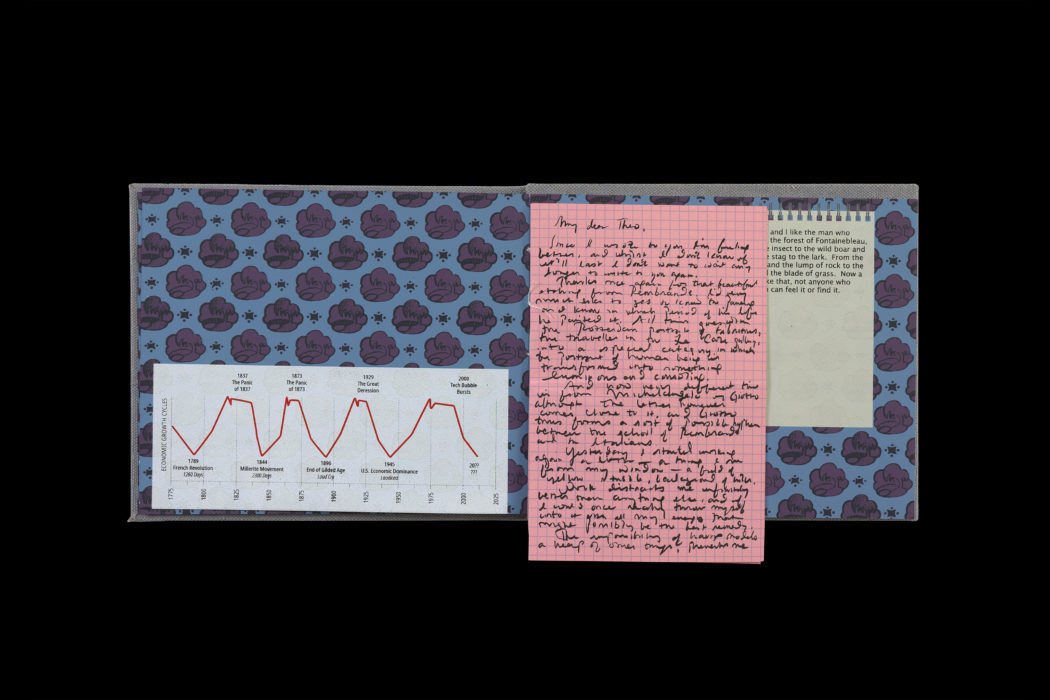 ECONOMIC GROWTH CYCLES
1837
The Panic
of 1837
1873
The Panic
of 1873
1929
The Great
Deression
2000
Tech Bubble
Bursts
1789
French Revolution
1260 Days
1844
Millerite Movement
2300 Days
1896
End of Gilded Age
Loud Cry
1945
U.S. Economic Dominance
20??
???
1775
1800
1825
1850
1875
1900
1925
1950
1975
2000
2025
My dear Theo,
Since I wrote to you I'm feeling
better, and whilst I don't know if
it'll last I don't want to wait any
longer to write to you again.
Thanks once again for that beautiful
etching from Rembrandt. I'd very
much like to
and know in which period of his life
he painted it. All this goes with
the Rotterdam portrait of Fabritius,
the traveller in the La Caze gallery,
into a special category in which
the portrait of human being is
transformed into something
luminous and consoling.
And how very different this
is from Michelangelo or Giotto
although the latter however
comes close to it, and Giotto
thus forms a sort of possible hyphen
between the school of Rembrandt
and the Italians.
Yesterday I started working
again a little — a thing I see
from my window — a field of
yellow stubble
Work distracts me infinitely
better than anything else, and if
I could once
into it with all my energy that
might possibly be the best remedy.
The impossibility of having models
a heap of other things, prevents me
and I like the man who
the forest of Fontainebleau,
insect to the wild boar and
stag to the lark. From the
and the lump of rock to the
the blade of grass. Now a
like that, not anyone who
can feel it or find it.